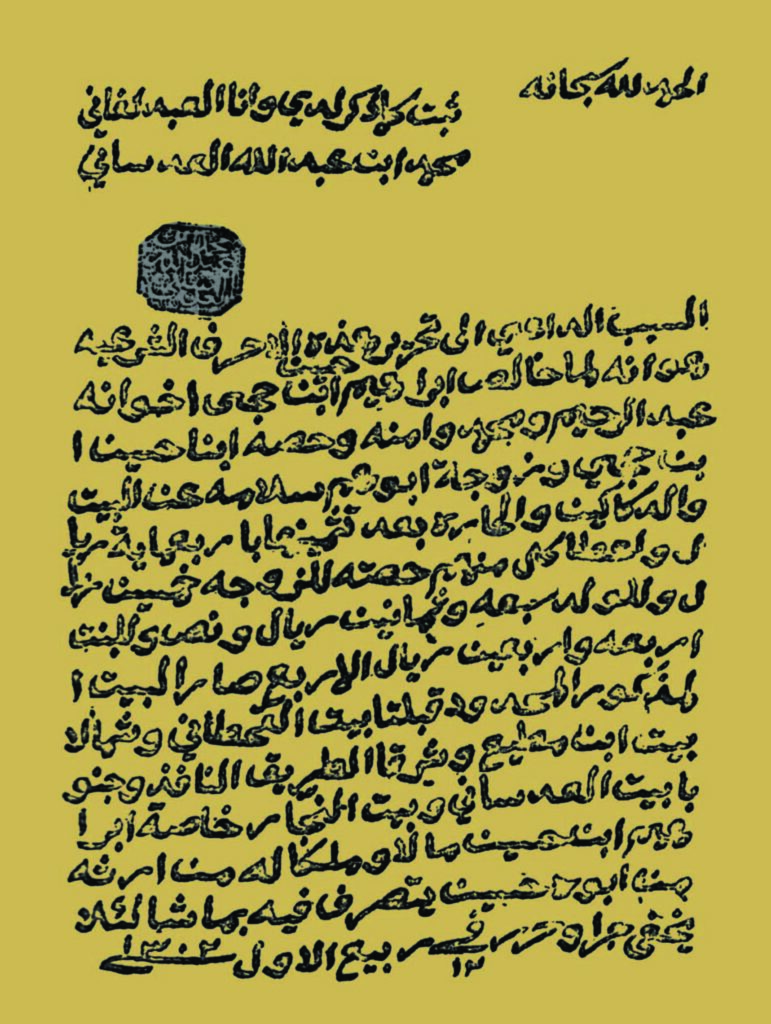 الحمد لله سبحانه
ثبت كما ذكر لدي وانا العبد الفاني
محمد ابن عبد الله العدساني
السبب الداعي الى تحرير هذه الاحرف الشرعيه
هو انه لما خالص ابراهيم ابن حسين جمي اخوانه
عبد الرحيم ومحمد وامنه وحصه ابنا حسين ا
بن جمي وزوجة ابوهم سلامه عن البيت
والدكاكين والحابره بعد تثمينها باربعماية ريا
ل ولعطا كل منهم حصته للزوجه خمسين ريا
ل وللولد سبعه وثمانين ريال ونص وللبنت
اربعه واربعين ريال الاربع صار البيت ا
لمذكور المحدود قبلتا بيت القحطاني وشمالا
بيت ابن مطيع وشرقا الطريق النافذ وجنو
با بيت العدساني وبيت النجار خاصة ابرا
هيم ابن حسين مالا وملكا له من ارثه
من ابوه حسين يتصرف فيه بما شا لئلا
يخفى جرا وحرر في ١٢ ربيع الاول ١٣٠٢